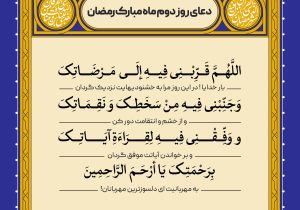 دعای روز دوم ماه مبارک رمضان
اللَّهُمَّ قَرِّبْنِی فِیهِ إِلَی مَرْضَاتِکَ
بار خدایا ! در این روز مرا به خشنودیهایت نزدیک گردان
وَجَنِّبْنِی فِیهِ مِنْ سَخَطِکَ وَ نَقِمَاتِکَ
و از خشم و انتقامت دور کن
وَ وَفِّقْنِی فِیهِ لِقِرَاءَةِ آیَاتِکَ
و بر خواندن آیاتت موفق گردان
بِرَحْمَتِکَ یَا أَرْحَمَ الرَّاحِمِینَ
به مهربانیت ای دلسوزترین مهربانان!